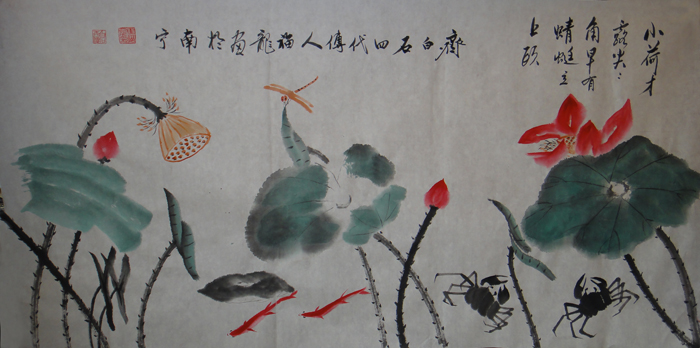 小荷才
露尖々
角早有
蜻蜓立
上頭
齊白石四代傳人福龍畫於南宁